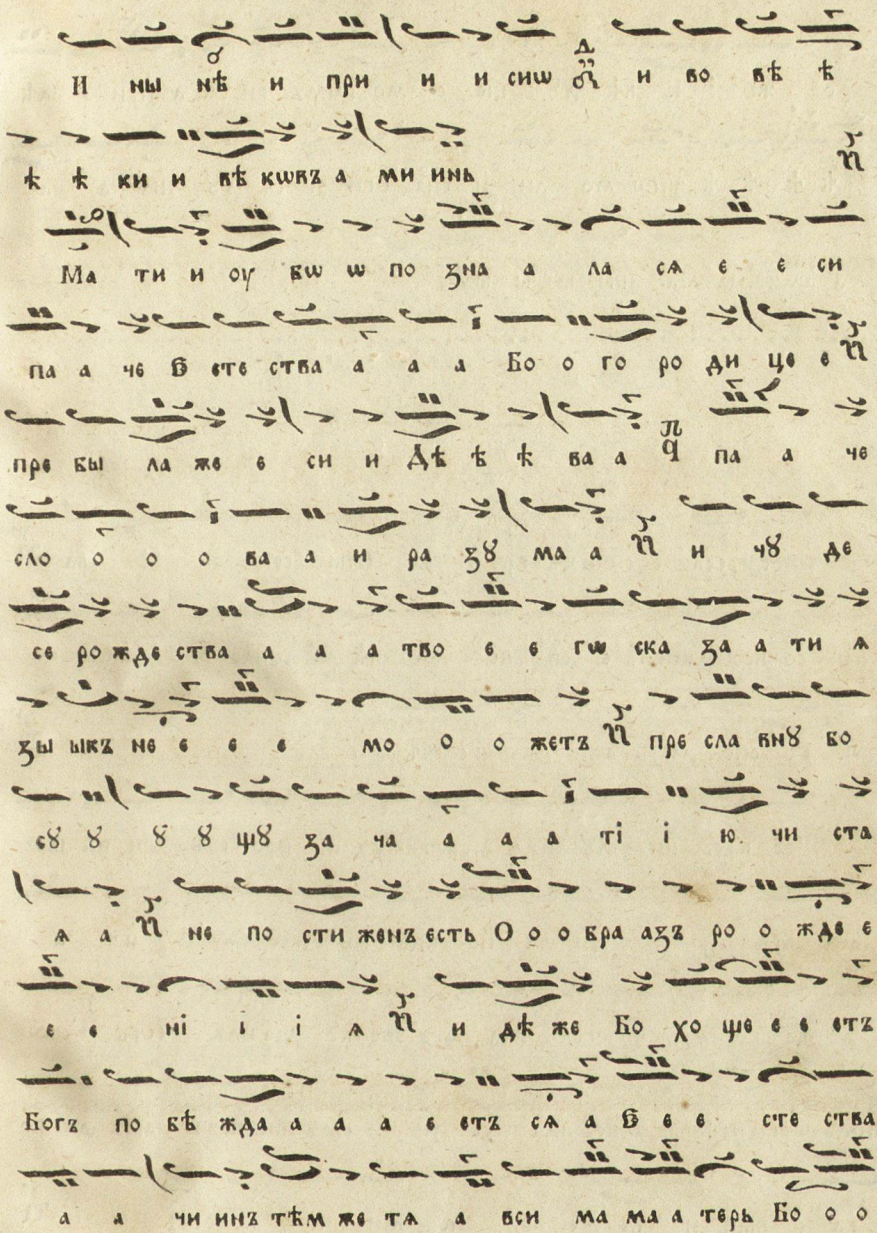 И ны нѣ и при и и сиѡ и во вѣ ѣ
ѣ ѣ ки и вѣ кѡвъ а ми инь
Ма ти и оу бѡ ѡ по зна а ла сѧ є є си
па а че Є сте ства а а а Бо о го ро ди це е
пре бы ла же е си и Дѣ ѣ ѣ ва а па а че
сло о о о ва а и ра зꙋ ма а и чꙋ де
се ро жде ства а а а тво е е гѡ ска за а ти ѧ
зы ыкъ не е е е мо о о жетъ пре сла внꙋ бо
сꙋ ꙋ ꙋ ꙋ щꙋ за ча а а а ті і ю чи ста
ѧ а не по сти женъ есть О о о бра азъ ро о жде е
е е ні і і ѧ и дѣ же Бо хо ще е е етъ
Богъ по бѣ жда а а а е етъ сѧ а Є е е сте ства
а а чи инъ тѣм же тѧ а вси ма ма а терь Бо о о